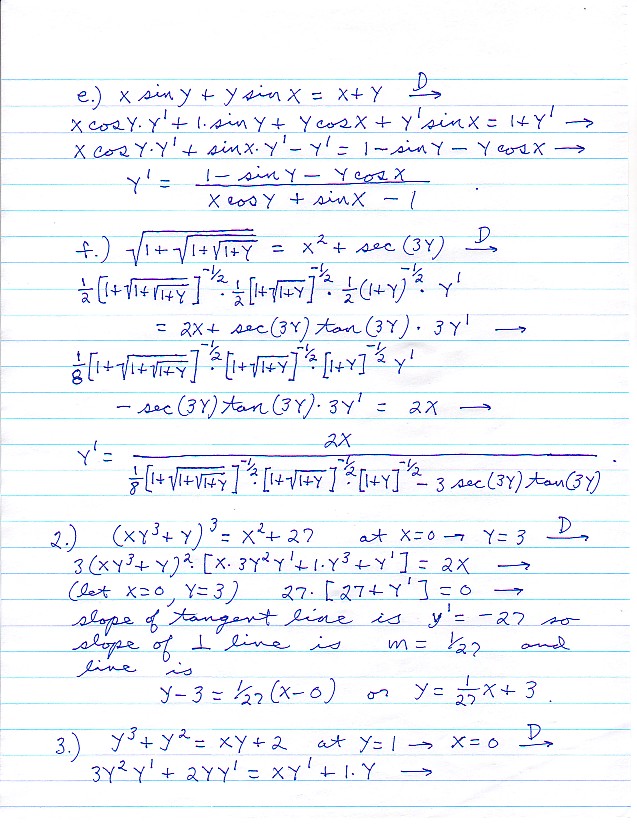 e.) x sin y + y sin x = x + y  D→
x cos y · y' + 1 · sin y + y cos x + y' sin x = 1 + y' →
x cos y · y' + sin x · y' − y' = 1 − sin y − y cos x →
y' = (1 − sin y − y cos x) / (x cos y + sin x − 1) .
f.) √(1 + √(1 + √(1+y))) = x² + sec (3y)  D→
½ [1+√(1+√(1+y))]^(-1/2) · ½ [1+√(1+y)]^(-1/2) · ½ (1+y)^(-1/2) · y'
= 2x + sec (3y) tan (3y) · 3y' →
⅛ [1+√(1+√(1+y))]^(-1/2) · [1+√(1+y)]^(-1/2) · [1+y]^(-1/2) y'
− sec (3y) tan (3y) · 3y' = 2x →
y' = 2x / (⅛ [1+√(1+√(1+y))]^(-1/2) · [1+√(1+y)]^(-1/2) · [1+y]^(-1/2) − 3 sec (3y) tan (3y)) .
2.) (xy³ + y)³ = x² + 27 at x=0 → y=3  D→
3 (xy³ + y)² · [x · 3y² y' + 1 · y³ + y'] = 2x →
(let x=0, y=3) 27 · [27 + y'] = 0 →
slope of tangent line is y' = −27 so
slope of ⊥ line is m = 1/27 and
line is
y − 3 = 1/27 (x − 0) or y = 1/27 x + 3 .
3.) y³ + y² = xy + 2 at y=1 → x=0  D→
3y² y' + 2y y' = x y' + 1 · y →